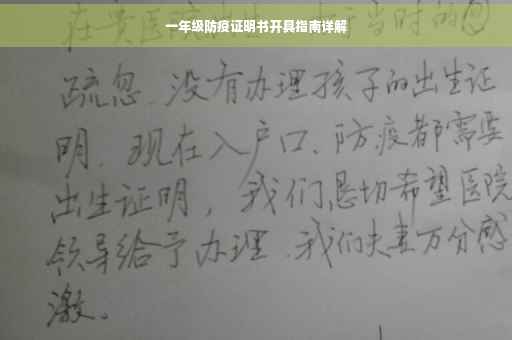 一年级防疫证明书开具指南详解
在贵医院 当时的
疏忽、没有办理孩子的出生证
明、现在入户口、防疫都需要
出生证明，我们恳切希望医院
领导给予办理、我们夫妻万分感
激。